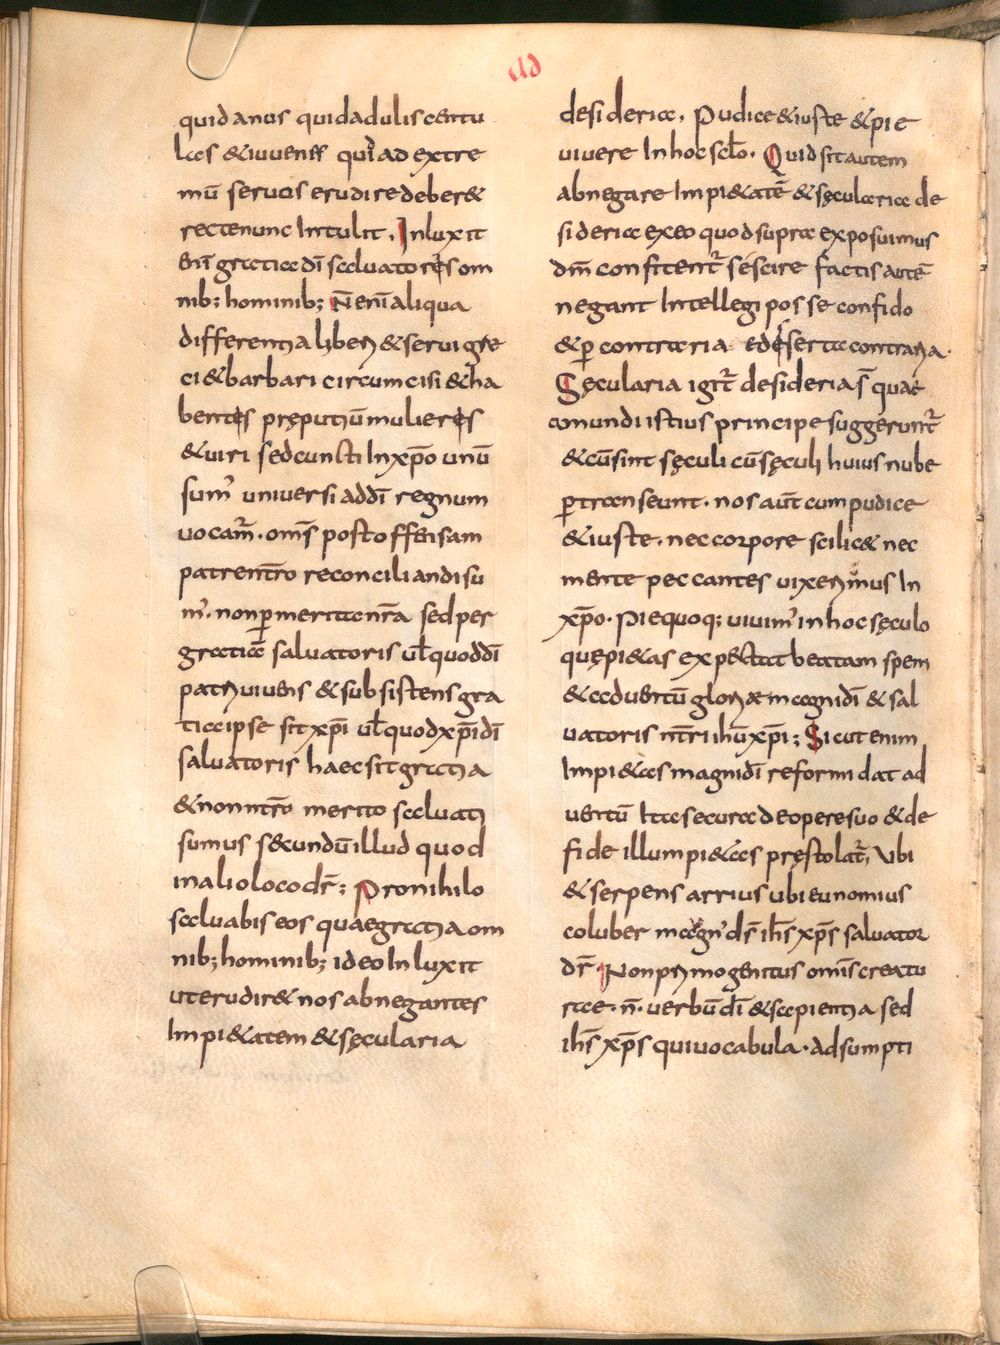 ad
quid anus quid aduliscentu
las &iuuenis quid ad extre
mū seruos erudire deber&
recte nunc Intulit. Inluxit
enī gratia dī saluatoris om
nib; hominib; N̄ enī aliqua
differentia liberi & serui gre
ci & barbari circumcisi & ha
bentis pręputiū mulieris
& uiri sed cuncti In xp̄o unū
sum' uniuersi ad dī regnum
uocam̄. om̄s post offensam
patri nr̄o reconciliandi su
m'. non ꝑ merita nr̄a sed per
gratiā saluatoris ul̄ quod dī
patri uiuens & subsistens gra
tia ipse sit xp̄i ul̄ quod xp̄i dī
saluatoris haec sit gratia
& non nr̄o merito saluati
sumus s&cundū illud quod
in alio loco dr̄; Pro nihilo
saluabis eos quae gratia om
nib; hominib; ideo Inluxit
ut erudir& nos abnegantes
Impi&atem & sęcularia
desideria. Pudice & iuste & pie
uiuere In hoc scl̄o. Quid sit autem
abnegare Impi&atē & sęcularia de
sideria ex eo quod supra exposuimus
dm̄ confitent̄ se scire factis autē
negant Intellegi posse confido
& ꝑ contraria edisserta contraria.
Sęcularia igit̄ desideria s̄ quae
a mundi istius principe suggerunt̄
& cū sint sęculi cū sęculi huius nube
ꝑtranseunt. nos aut̄ cum pudice
& iuste. nec corpore scilic& nec
mente peccantes uixerimus In
xp̄o. Pie quoq; uiuim' in hoc sęculo
quę pi&as exp&tat beatam spem
& aduentū gloriæ magni dī & sal
uatoris nr̄i ih̄u xp̄i; Sicut enim
Impi&as magni dī reformidat ad
uentū Ita secura de opere suo & de
fide illum pi&as pręstolat̄, Vbi
& serpens arrius ubi eunomius
coluber magn' ds̄ ih̄s xp̄s saluator
dr̄ Non primogenitus om̄is creatu
rae. n̄. uerbū dī & sapientia sed
ih̄s xp̄s qui uocabula. adsumpti